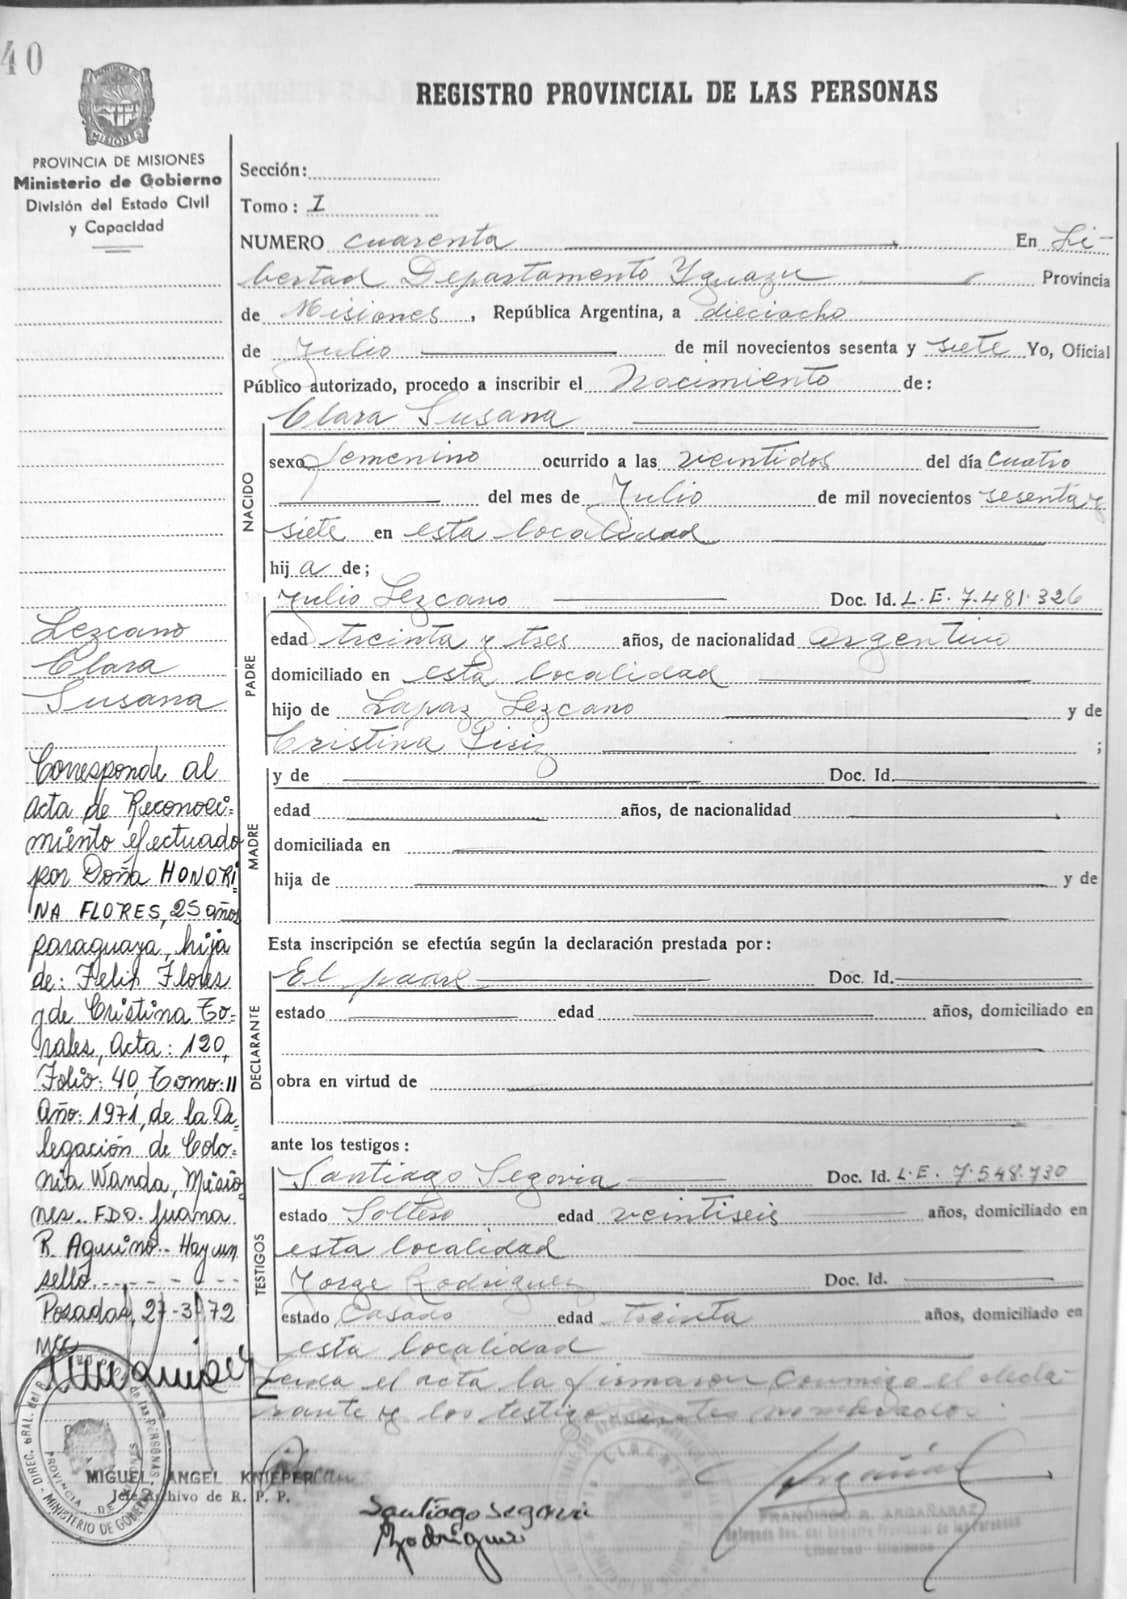 40
MISIONES
PROVINCIA DE MISIONES
Ministerio de Gobierno
División del Estado Civil
y Capacidad
REGISTRO PROVINCIAL DE LAS PERSONAS
Sección:
Tomo: I
NUMERO cuarenta En Li-
bertad Departamento Yguazu Provincia
de Misiones, República Argentina, a dieciocho
de Julio de mil novecientos sesenta y siete Yo, Oficial
Público autorizado, procedo a inscribir el Nacimiento de:
Clara Susana
NACIDO
sexo femenino ocurrido a las veintidos del día cuatro
del mes de Julio de mil novecientos sesenta y
siete en esta localidad
hija de;
PADRE
Julio Lezcano Doc. Id. L.E. 7.481.326
edad treinta y tres años, de nacionalidad argentino
domiciliado en esta localidad
hijo de Lapaz Lezcano y de
Cristina ;
MADRE
y de Doc. Id.
edad años, de nacionalidad
domiciliada en
hija de y de
Esta inscripción se efectúa según la declaración prestada por:
DECLARANTE
El padre Doc. Id.
estado edad años, domiciliado en
obra en virtud de
ante los testigos:
TESTIGOS
Santiago Segovia Doc. Id. L.E. 7.548.730
estado Soltero edad veintiseis años, domiciliado en
esta localidad
Jorge Rodriguez Doc. Id.
estado Casado edad treinta años, domiciliado en
esta localidad
Leida el acta la firmaron conmigo el decla-
rante y los testigo antes nombrados.
Lezcano
Clara
Susana
Corresponde al
acta de Reconoci-
miento efectuado
por Doña HONORI-
NA FLORES, 25 años
paraguaya, hija
de: Felix Flores
y de Cristina Go-
rales, Acta: 120,
Folio: 40, Tomo: II
Año: 1971, de la De-
legación de Colo-
nia Wanda, Misio-
nes. FDO. Juana
R. Aquino. Hay un
sello.
Posadas, 27-3-72
DIREC. GRAL. del R. de las PERSONAS
PROVINCIA DE MISIONES
MINISTERIO DE GOBIERNO
MIGUEL ANGEL KNIEPER
Jefe Archivo de R. P. P.
Santiago Segovia
Rodriguez
FRANCISCO R. ARGAÑARAZ
Delegado del Registro Provincial de las Personas
Libertad - Misiones